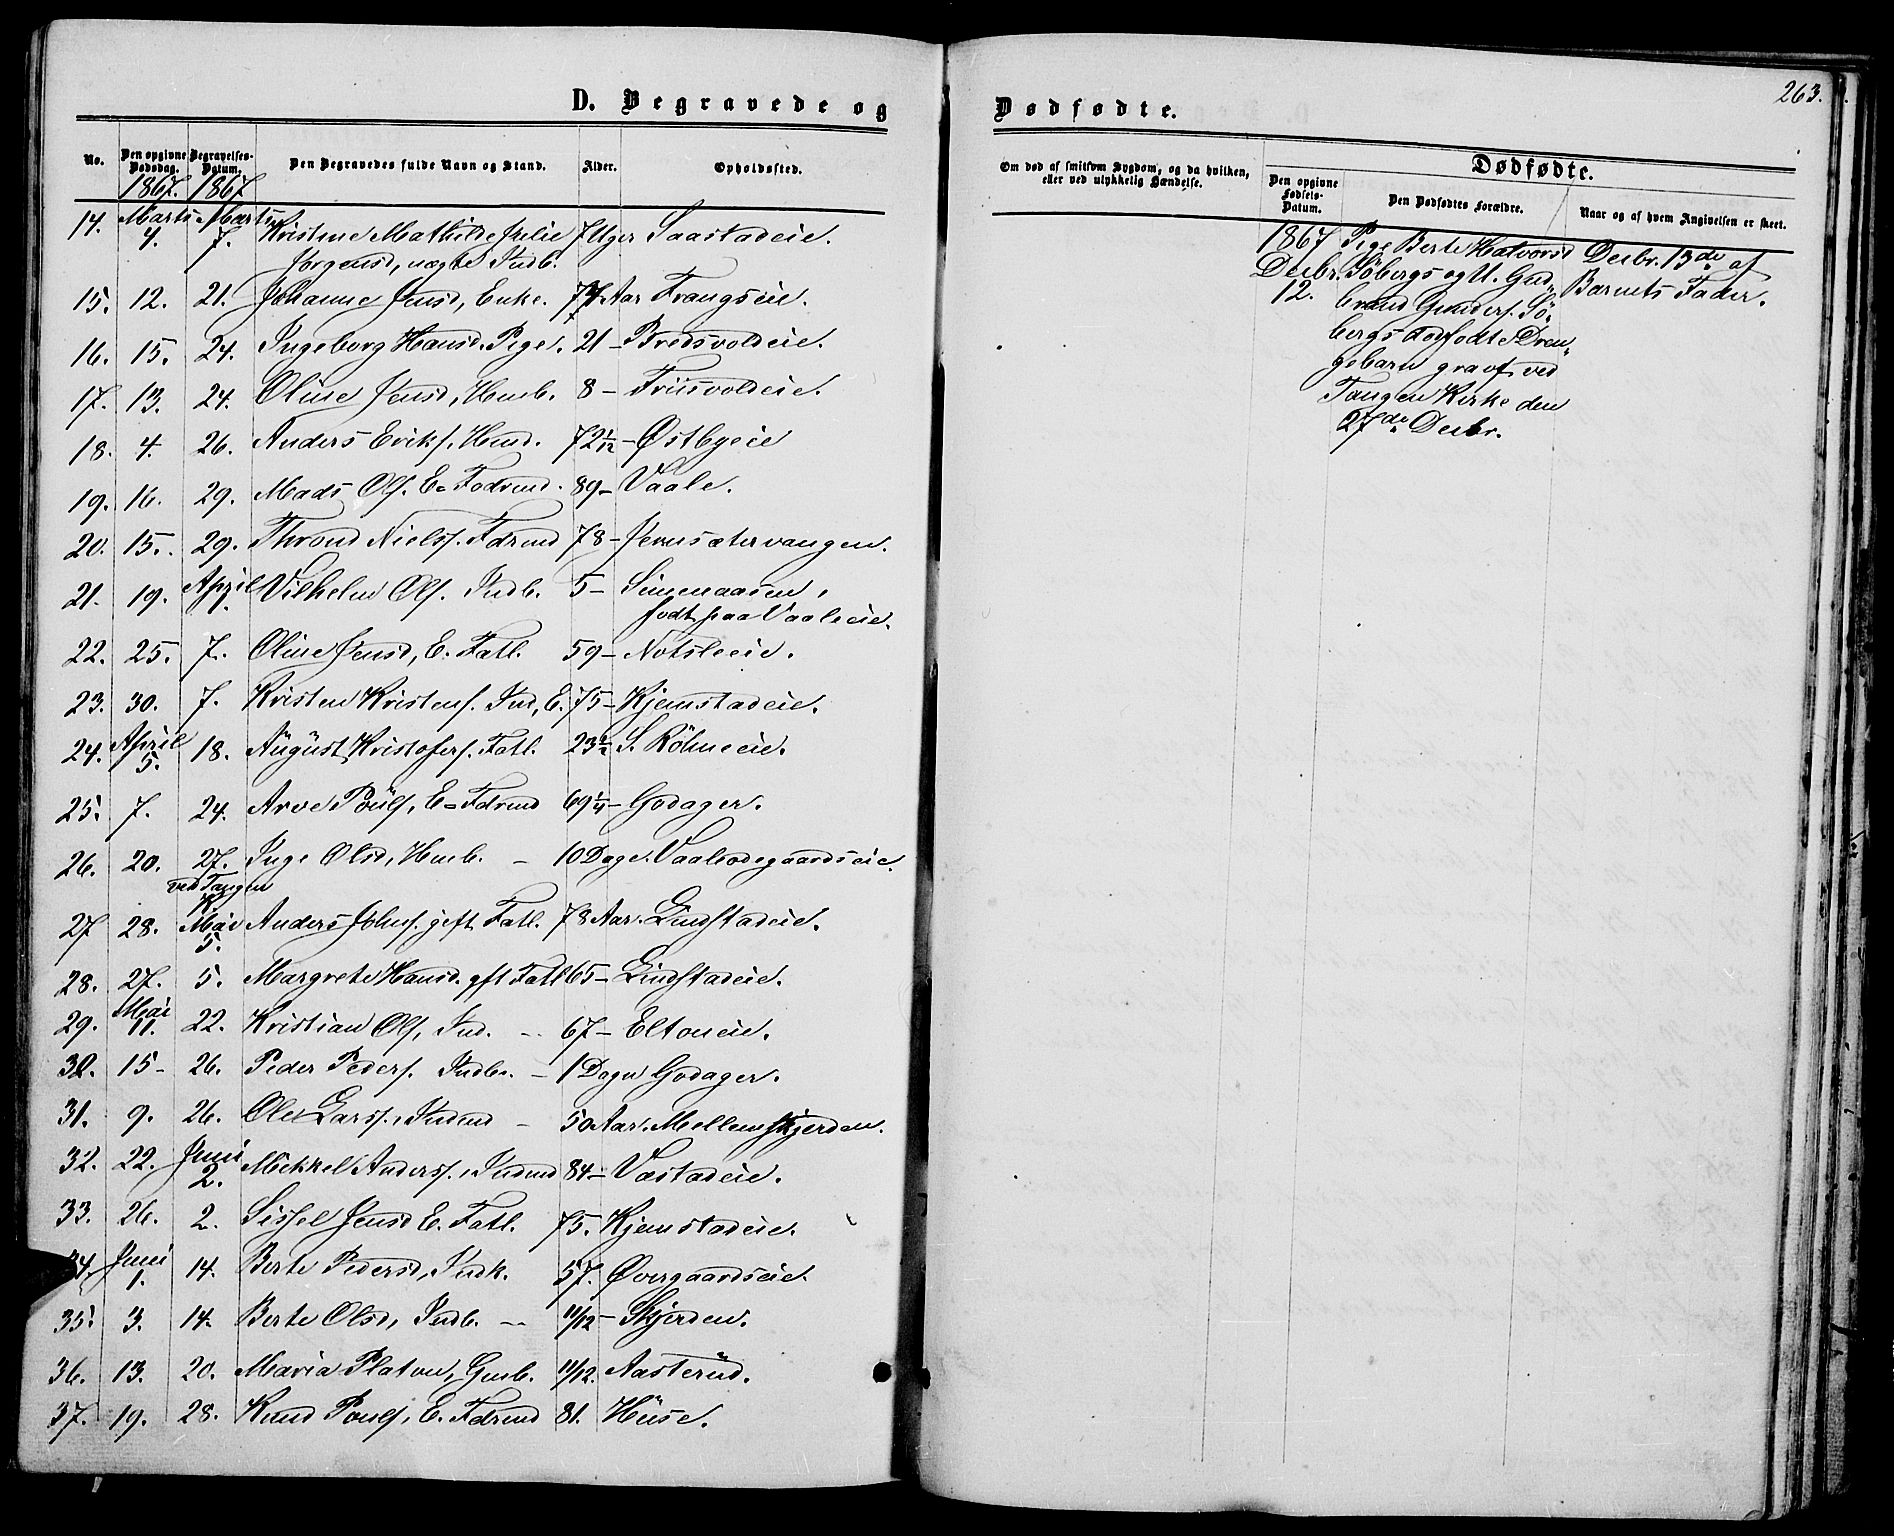 263.
D. Begravede og Dødfødte.
No. Den opgivne Dødsdag. Begravelses-Datum. Den Begravedes fulde Navn og Stand. Alder. Opholdssted.
1867. 1867
14. Marts 4. Marts 7. Kristine Mathilde Julie 7 Uger Saastadeie.
Jørgensd, uægte Indb.
15. 12. 21. Johanne Jensd, Enke. 74 Aar Frangseie.
16. 15. 24. Ingeborg Hansd. Pige. 21 – Bredsvoldeie.
17. 13. 24. Oline Jensd, Hmb. 8 – Friisvoldeie.
18. 4. 26. Anders Eriks. Hmd. 72 1/12 – Østbyeie
19. 16. 29. Mads Ols. E. Fodrmd. 89 – Vaale.
20. 15. 29. Thrond Nielss. Fdrmd 78 – Jernsætervangen.
21. 19. April 7. Vilhelm Ols. Indb. 5 – Simenaasen,
født paa Vaaleeie.
22. 25. 7. Oline Jensd, E. Fatl. 59 – Nøtsleeie.
23. 30. 7. Kristen Kristens. Ind, E. 75 – Kjemstadeie.
24. April 5. 18. August Kristofers. Fatl. 23 S. Røhneeie.
25. 7. 24. Arve Pouls, E. Fdrmd 69 1/4 – Godager.
26. 20. 27. Inge Olsd, Hmb. – 10 Dage. Vaaleødegaardseie.
ved Tangen
K.
27 28. Mai 5. Anders Johns. gift Fatl. 78 Aar. Lindstadeie.
28. 27. 5. Margrete Hansd. gft Fatl 65 – Lindstadeie.
29. Mai 11. 22. Kristian Ols, Ind. – 67 – Eltoneie.
30. 15 – 26. Peder Peders. Indb. – 1 Døgn Godager.
31. 9. 26. Ole Larss. Indmd – 50 Aar. Mellemskjerden.
32. 22. Juni 2. Mikkel Anderss. Indmd 84 – Væstadeie.
33. 26. 2. Sissel Jensd E. Fatl. 75. Kjemstadeie.
34. Juni 1. 14. Berte Pedersd, Indk. 57. Øvergaardseie.
35. 3. 14. Berte Olsd, Indb. – 11/12 – Skjerden.
36. 13. 20. Maria Platou, Gmb. 11/12. Aasterud.
37. 19. 28. Knud Pouls, E. Fdrmd 81. Huse.
Om død af smitsom Sygdom, og da hvilken,
eller ved ulykkelig Hændelse.
Dødfødte.
Den opgivne Fødsels-Datum. Den Dødfødtes Forældre. Naar og af hvem Angivelsen er skeet.
1867 Pige Berte Halvorsd Decbr. 13de af
Decbr. Søbergs og U. Gud- Barnets Fader.
12. brand Gunders. Sø-
bergs dødfødte Dren-
gebarn gravf. ved
Tangen Kirke den
27de Decbr.